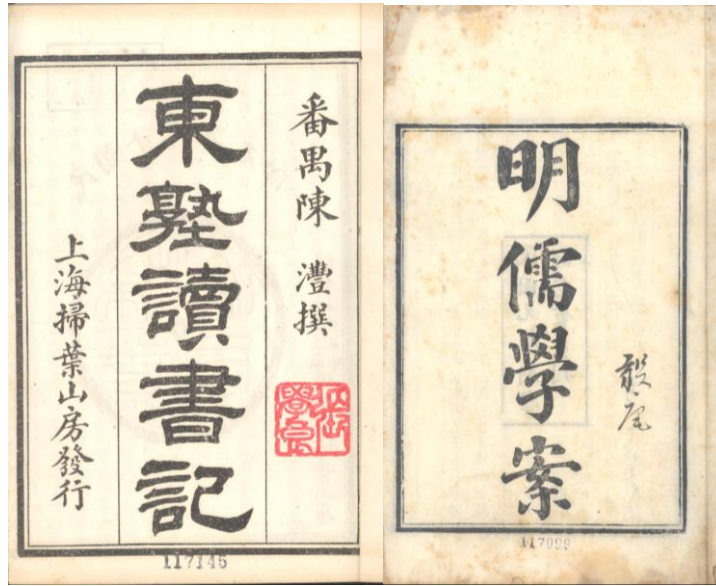 番禺陳 灃撰
東塾讀書記
上海掃葉山房發行
117145
明儒學案
117099